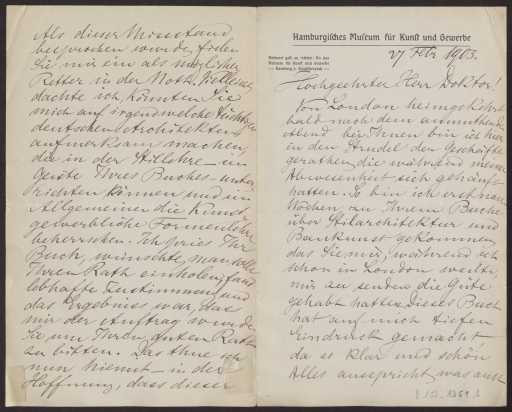 Hamburgisches Museum für Kunst und Gewerbe
27 Febr. 1903.
Hochgeehrter Herr Doktor!
Von London heimgekehrt
bald nach dem anmuthenden
Abend bei Ihnen bin ich hier
in den Strudel der Geschäfte
gerathen, die während meiner
Abwesenheit sich gehäuft
hatten. So bin ich erst nach
Wochen an Ihrem Buche
über Stilarchitektur und
Baukunst gekommen,
das Sie mir, während ich
schon in London weilte,
mir zu senden die Güte
gehabt hatten. Dieses Buch
hat auf mich tiefen
Eindruck gemacht
da es klar und schön
Alles ausspricht, was auch
Als dieser Missstand
besprochen wurde, fielen
Sie mir ein als möglicher
Retter in der Noth. Vielleicht
dachte ich, könnten Sie
mich auf irgendwelche
deutschen Architekten
aufmerksam machen,
die in der Stillehre – im
Geiste Ihres Buches – unter-
richten können und im
Allgemeinen die kunst-
gewerbliche Formenlehre
beherrschen. Ich pries Ihr
Buch, wünschte, man solle
Ihren Rath einholen, fand
lebhafte Zustimmung und
das Ergebniss war, dass
mir der Auftrag wurde,
Sie um Ihren guten Rath
zu bitten. Das thue ich
nun hiemit – in der
Hoffnung, dass dieser